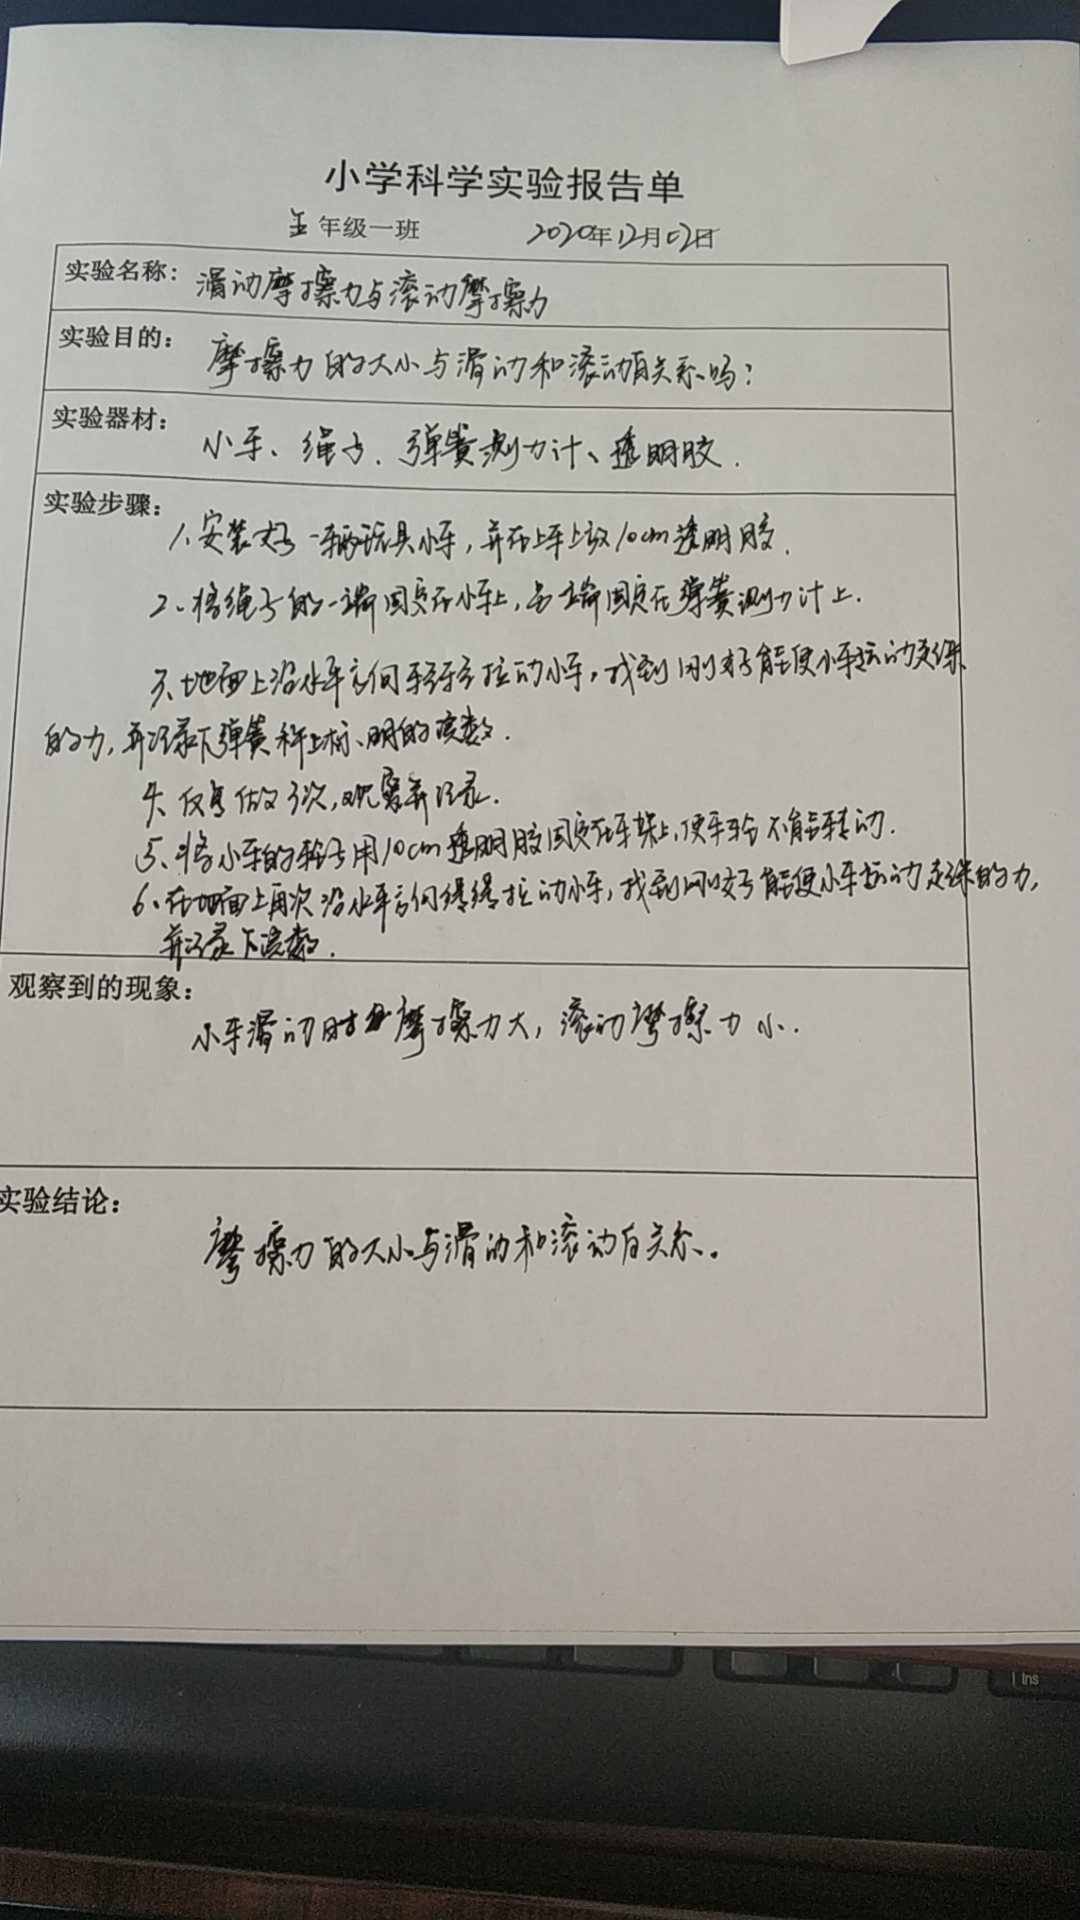 小学科学实验报告单
五年级一班 2020年12月02日
实验名称: 滑动摩擦力与滚动摩擦力
实验目的: 摩擦力的大小与滑动和滚动有关系吗?
实验器材: 小车、绳子、弹簧测力计、透明胶.
实验步骤:
1.安装好一辆玩具小车,并在小车上放10cm透明胶.
2、将绳子的一端固定在小车上,另一端固定在弹簧测力计上.
3、地面上沿水平方向轻轻拉动小车,找到刚好能使小车运动起来
的力,并记录下弹簧秤上标明的读数.
4、反复做3次,观察并记录.
5、将小车的轮子用10cm透明胶固定在车架上,使车轮不能转动.
6、在地面上再次沿水平方向缓缓拉动小车,找到刚好能使小车运动起来的力,
并记录下读数.
观察到的现象:
小车滑动时摩擦力大,滚动摩擦力小.
实验结论:
摩擦力的大小与滑动和滚动有关系。
Ins